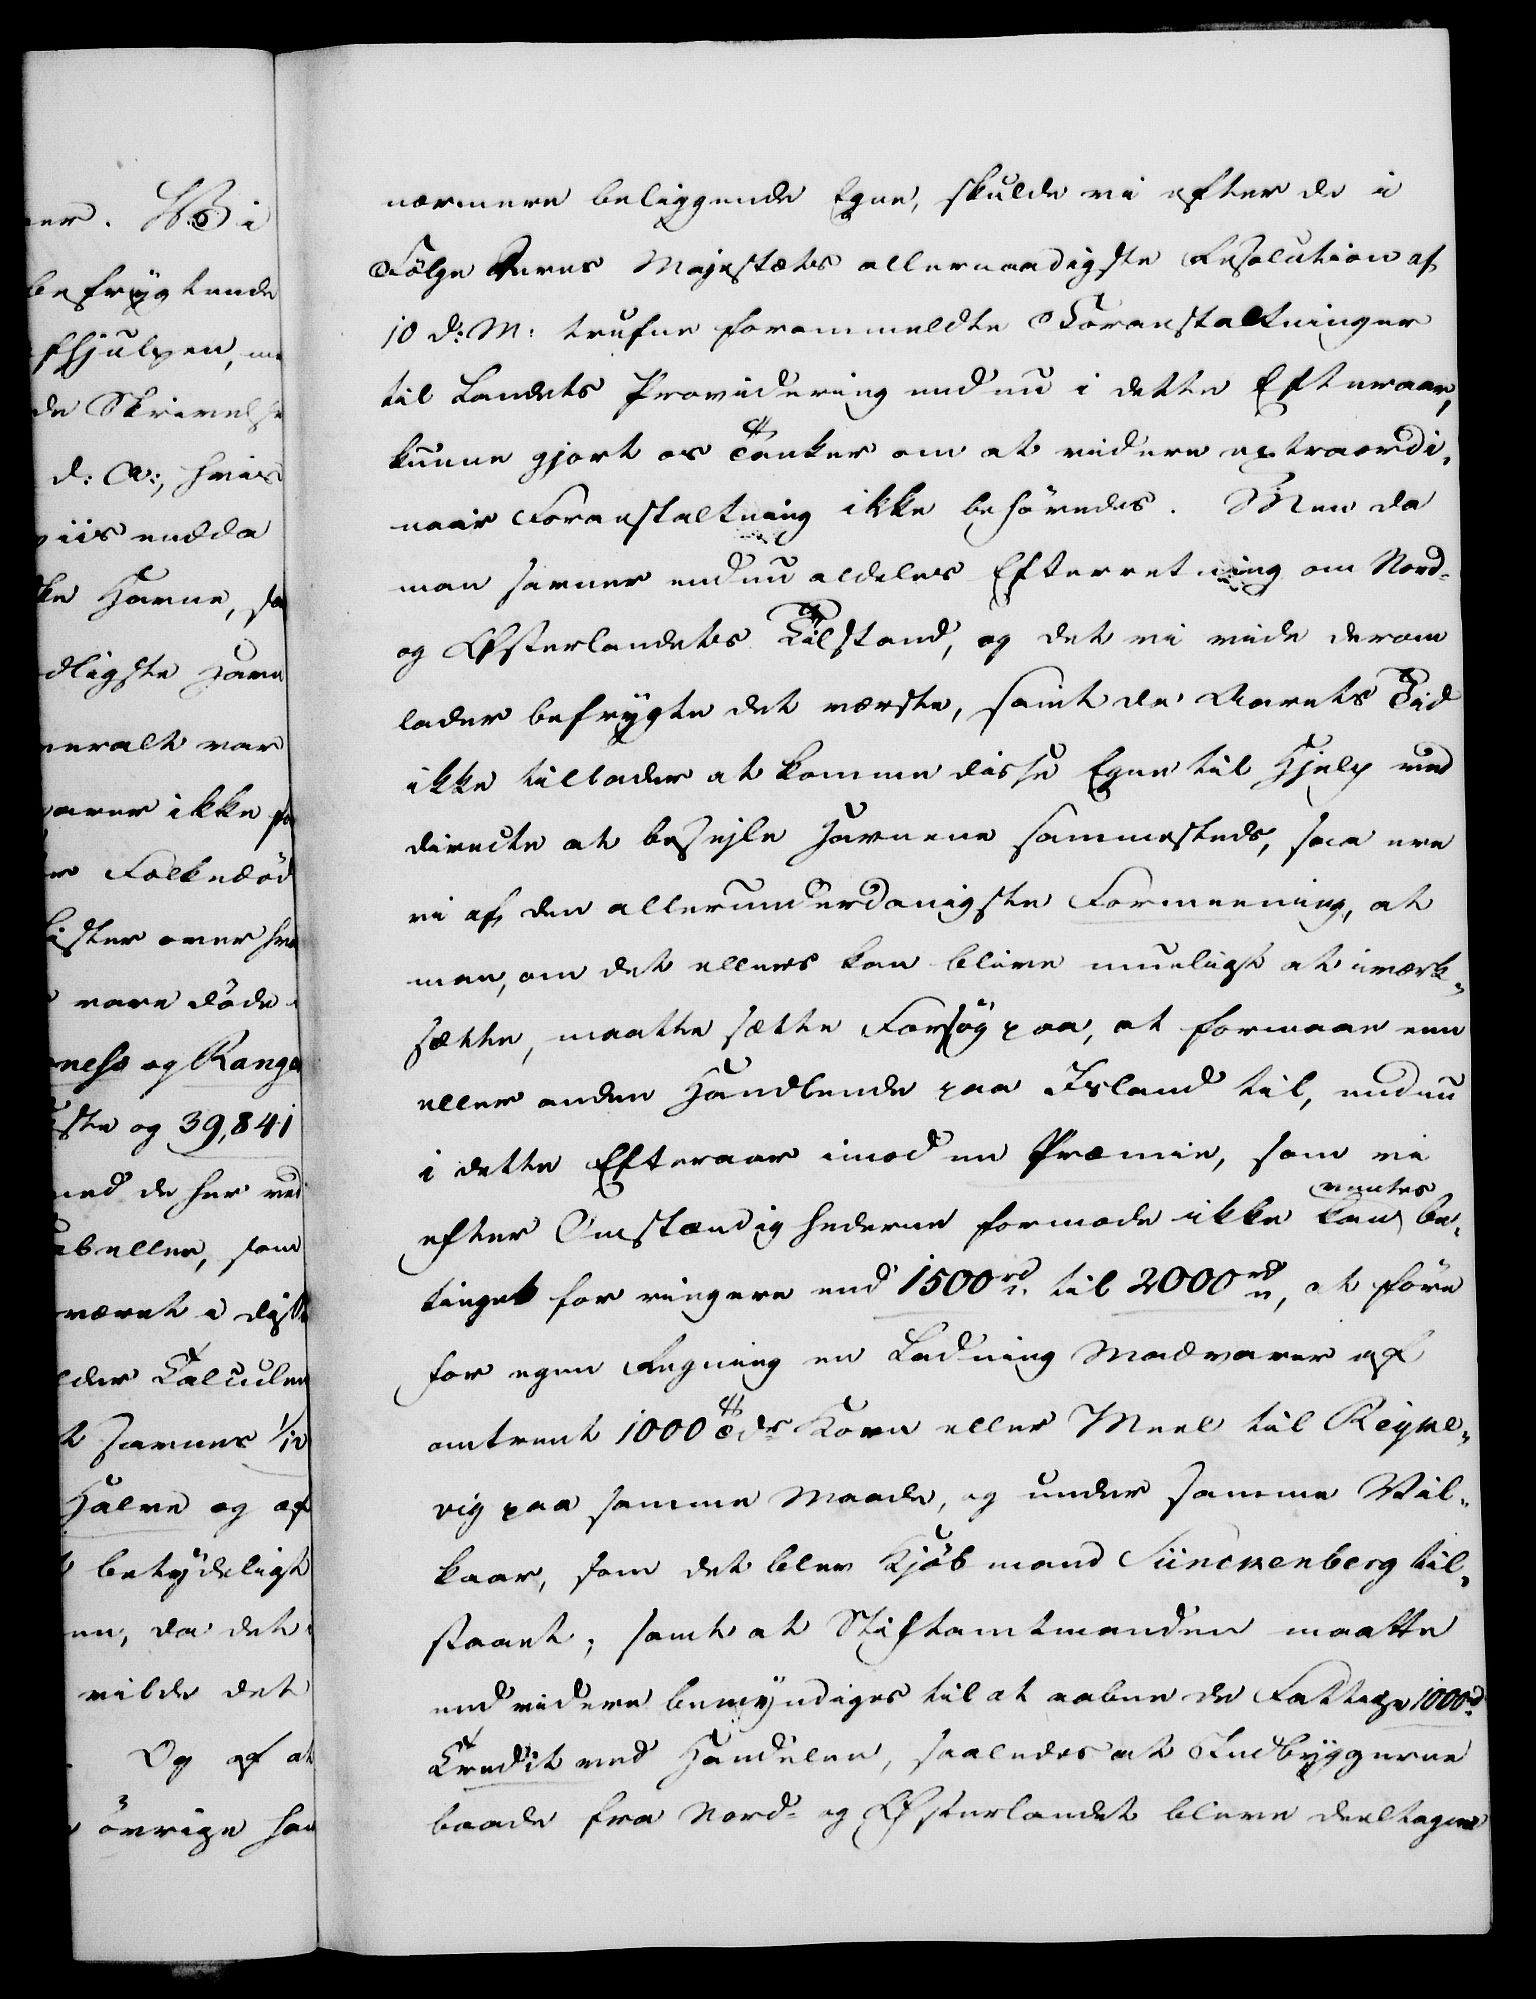 er. Vi
befrygtende
fhjulpen, me
de Skrivelse
d: A:, hvis
viis endda
ke Havne, sa
dligste Havn
veralt var
varer ikke fo
Folkedød
Lister over hva
vare døde
ness og Range
ste og 39,841
med de her ved
abeller, som
været i disse
lder Calculen
t savnes 1/10
Halve og af
betydeligt
en, da det
vilde det
Og af at
øvrige hav
nærmere beliggende Egne, skulde vi efter de i
Følge Deres Majestæts allernaadigste Resolution af
10 d: M: trufne forommeldte Foranstaltninger
til Landets Providering endnu i dette Efteraar,
kunne gjort os Tanker om at videre extraordi-
nair Foranstaltning ikke behøvedes. Men da
man savner endnu aldeles Efterretning om Nord-
og Østerlandets Tilstand, og det vi vide derom
lader befrygte det værste, samt da Aarets Tid
ikke tillader at komme disse Egne til Hjelp ved
directe at besejle Havnene sammesteds, saa ere
vi af den allerunderdanigste Formeening, at
man, om det ellers kan blive mueligt at iværk-
sætte, maatte sætte Forsøg paa, at formaae een
eller anden Handlende paa Island til, endnu
i dette Efteraar imod en Præmie, som vi
efter Omstændighederne formode ikke kan ventes be-
tinget for ringere end 1500 rd. til 2000 rd, at føre
for egen Regning en Ladning Madvarer af
omtrent 1000 Tdr Korn eller Meel til Reyke-
vig paa samme Maade, og under samme Vil-
kaar, som det blev Kjøbmand Sünckenberg til-
staaet; samt at Stiftamtmanden maatte
end videre bemyndiges til at aabne de Fattige 1000 rd
Credit ved Handelen, saaledes at Indbyggerne
baade fra Nord- og Østerlandet bleve deeltagne